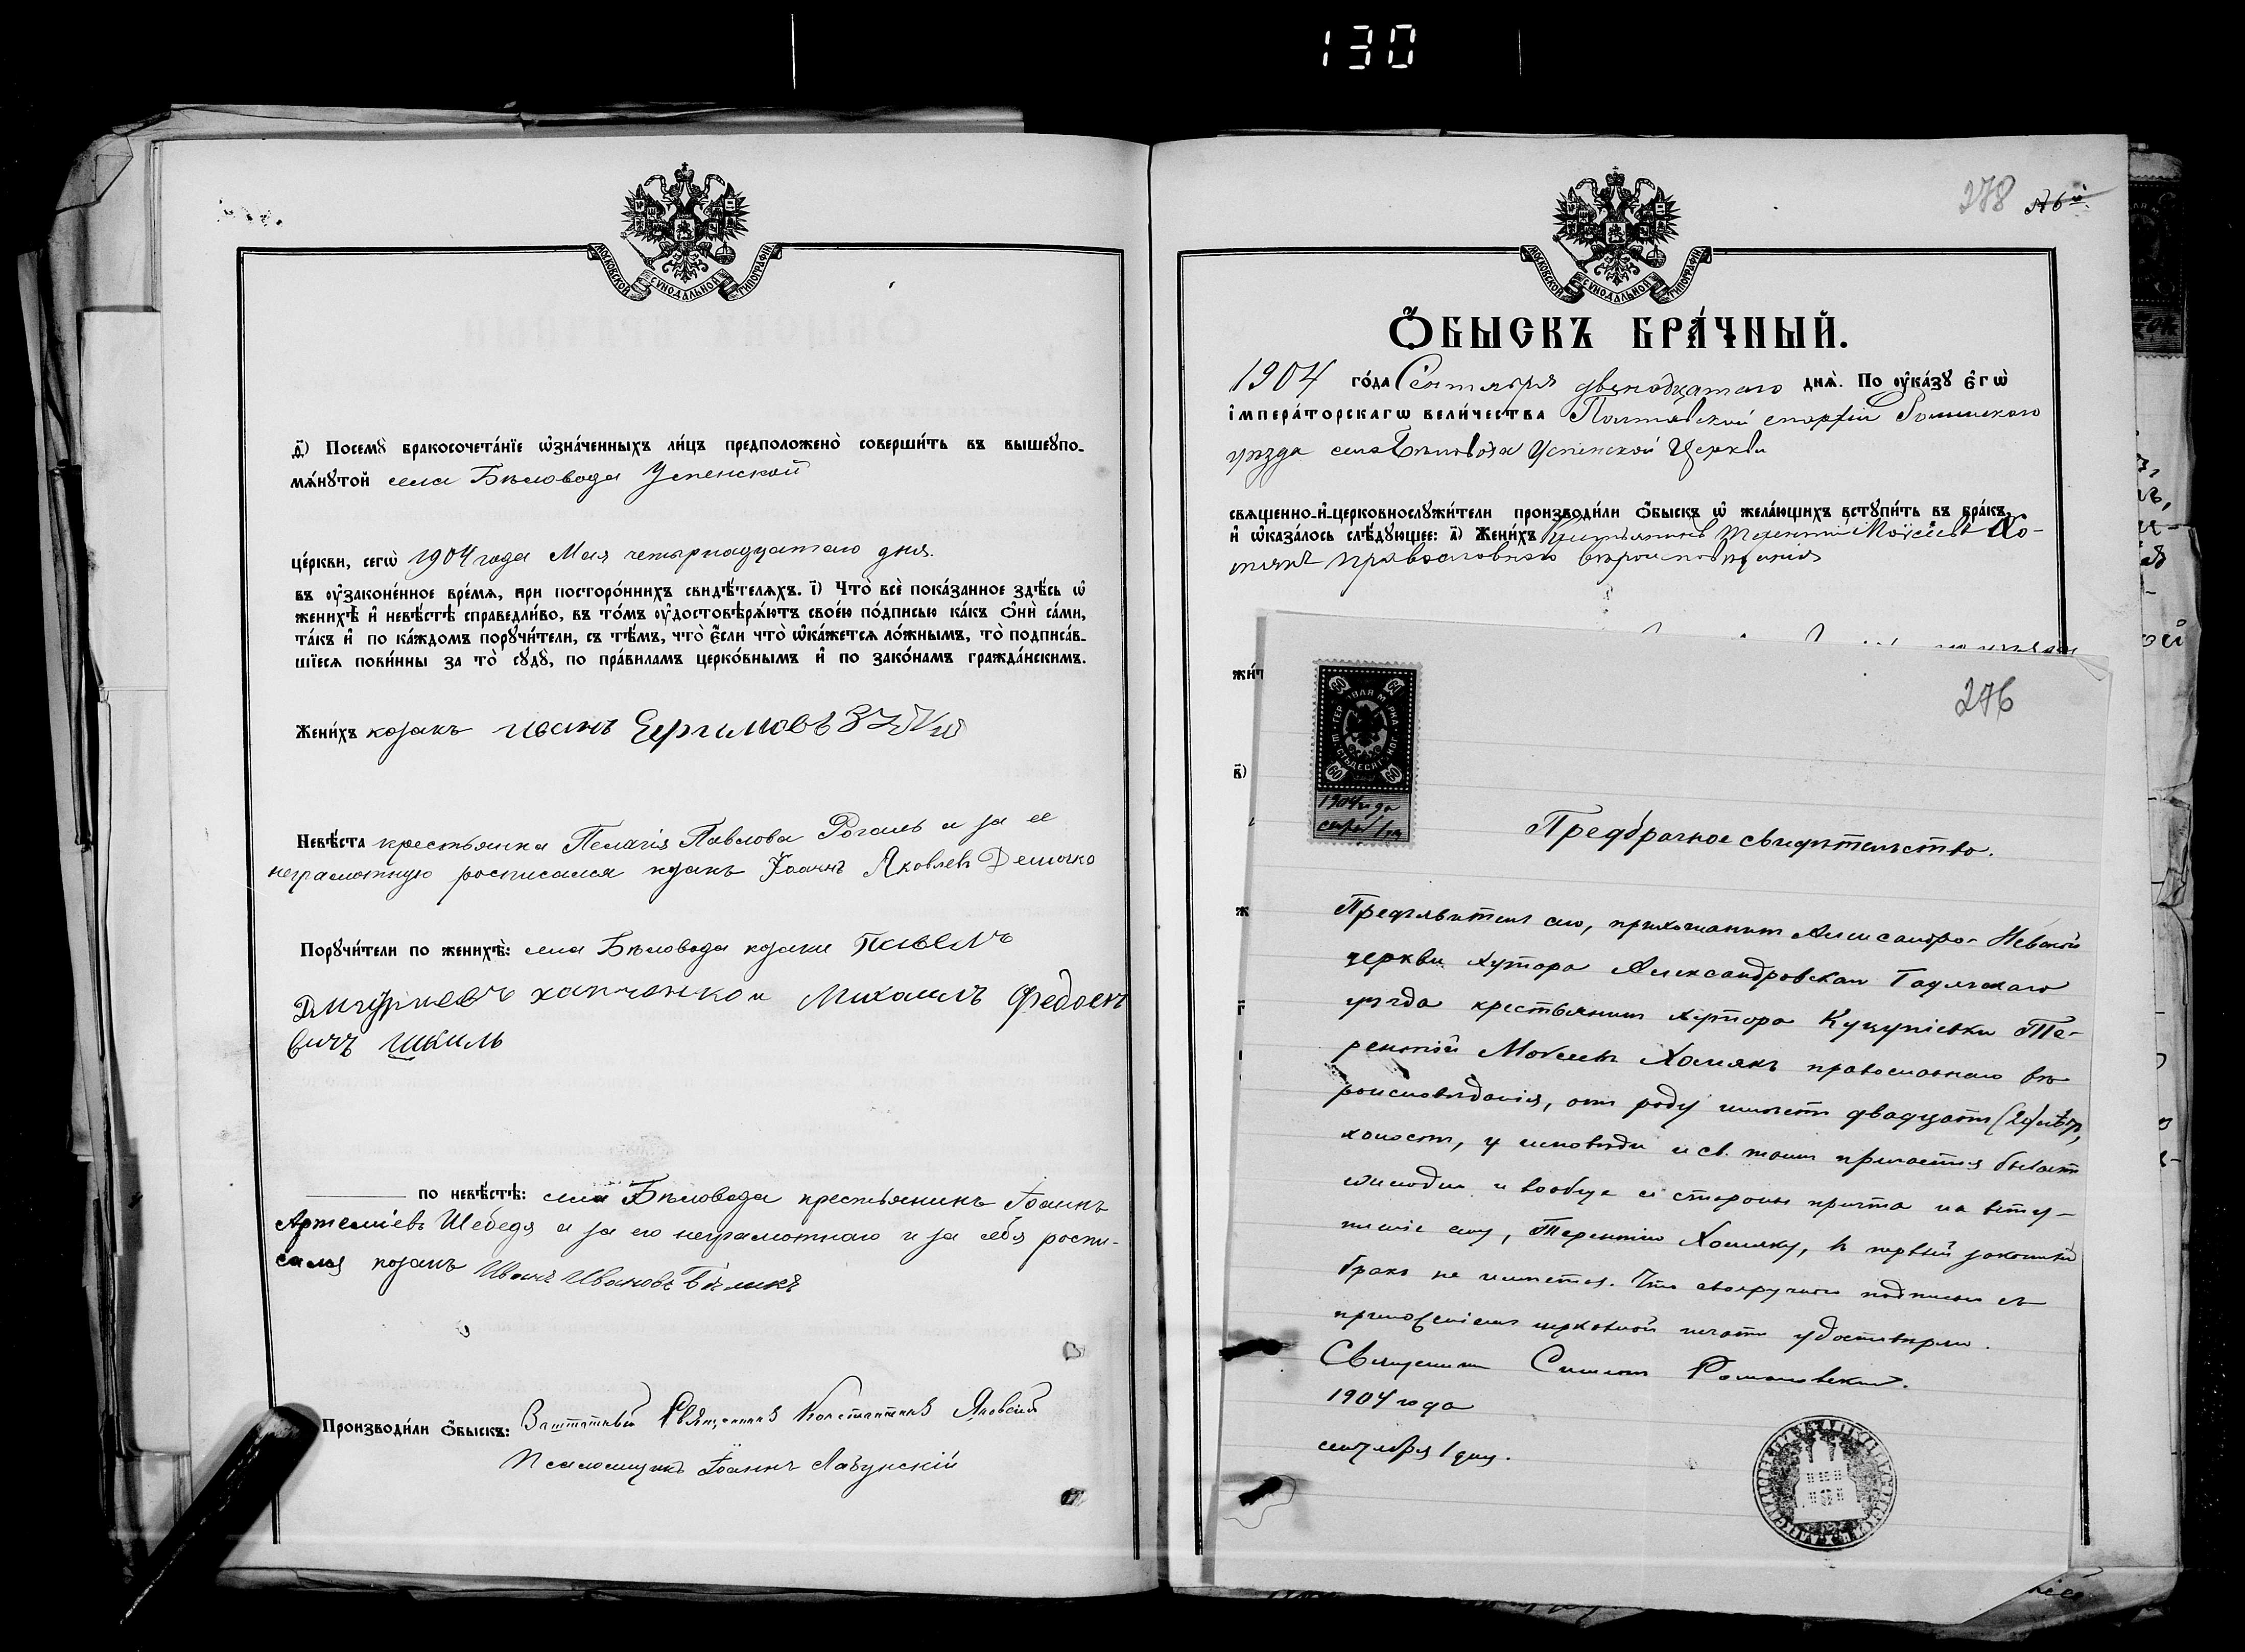 130
МОСКОВСКОЙ СѴНОДАЛЬНОЙ ТИПОГРАФІИ
д҃) Посемꙋ бракосочета́нїе ѡ҆зна́ченныхъ ли́цъ предположено̀ соверши́ть въ вышеупо-
мѧ́нꙋтой села Бѣловода Успенской
це́ркви, сегѡ̀ 1904 года Мая четырнадцатаго дня.
въ ᲂу҆законе́нное вре́мѧ, при посторо́ннихъ свидѣ́телѧхъ. і҃) Что̀ всѐ пока́занное здѣ́сь ѡ҆
женихѣ̀ и҆ невѣ́стѣ справедли́во, въ то́мъ ᲂу҆достовѣрѧ́ютъ свое́ю по́дписью ка́къ ѻ҆нѝ са́ми,
та́къ и҆ по ка́ждомъ порꙋчи́тели, съ тѣ́мъ, что̀ є҆́сли что̀ ѡ҆ка́жетсѧ ло́жнымъ, то̀ подписа́в-
шїесѧ пови́нны за то̀ сꙋдꙋ̀, по пра́виламъ церко́внымъ и҆ по зако́намъ гражда́нскимъ.
Жени́хъ козакъ иванъ
Невѣ́ста крестьянка Пелагія Павлова Рогаль и за ее
неграмотную росписался козакъ Іоаннъ Яковлевъ Демочко
Порꙋчи́тели по женихѣ̀: села Бѣловода козаки павелъ
Дмитріевъ харченко и Михаилъ Федосе
вичъ шкиль
по невѣ́стѣ: села Бѣловода крестьянинъ Іоаннъ
Артеміевъ Шебедя и за его неграмотнаго и за себя роспи-
сался козакъ Иванъ Ивановъ Бѣликъ
Производи́ли ѻ҆́быскъ: Заштатный Священникъ Константинъ Яновскій
Псаломщикъ Іоаннъ Лазунскій
278
МОСКОВСКОЙ СѴНОДАЛЬНОЙ ТИПОГРАФІИ
Ѻ҆́БЫСКЪ БРА́ЧНЫЙ.
1904 го́да Сентября двенадцатаго днѧ̀. По ᲂу҆ка́зꙋ є҆гѡ̀
і҆мпера́торскагѡ вели́чества Полтавской епархіи Роменскаго
уѣзда села Бѣловода Успенской Церкви
свѧщенно-и҆-церковнослꙋжи́тели производи́ли ѻ҆́быскъ ѡ҆ жела́ющихъ встꙋпи́ть въ бра́къ,
и҆ ѡ҆каза́лось слѣ́дꙋющее: а҃) Жени́хъ крестьянинъ Терентій Моисеевъ Хо-
мякъ православнаго вѣроисповѣданія
жи́т
в҃)
276
60 60
ГЕРБОВАЯ МАРКА
ШЕСТЬДЕСЯТ КОП.
60 60
1904 года
сентяб 1 дня
Предбрачное свидѣтельство.
Предъявитель сего, прихожанинъ Александро-Невской
церкви хутора Александровскаго Гадячскаго
уѣзда крестьянинъ хутора Те-
рентій Моисеевъ Хомякъ православнаго вѣ-
роисповѣданія, отъ роду имѣетъ двадцать (20) лѣтъ,
холостъ, у исповѣди и св. таинъ причастія бываетъ
ежегодно и вообще со стороны причта на всту-
пленіе ему, Терентію Хомяку, въ первый законный
бракъ не имѣется. Что своеручною подписью съ
приложеніемъ церковной печати удостовѣряю.
Священникъ Симеонъ Романовскій.
1904 года
сентября 1 дня.